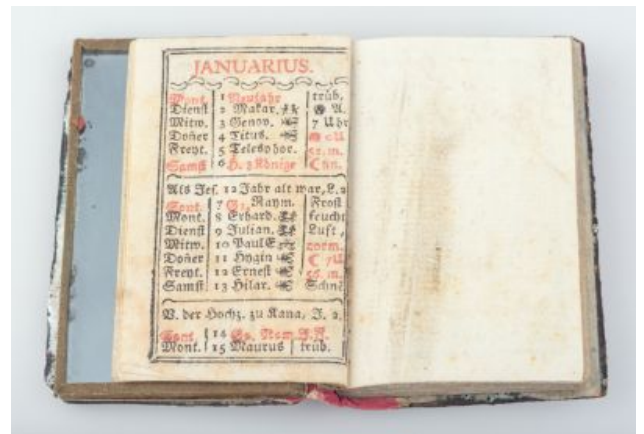 JANUARIUS.
Mont. 1 Neujahr trüb.
Dienst 2 Makar. U.
Mitw. 3 Genov. 7 Uhr
Doñer 4 Titus.
Freyt. 5 Telesphor. 52. m.
Samst 6 H. 3 Könige ☾ fin.
Als Jes. 12 Jahr alt war, L. 2
Sont. 7 Raym. Frost
Mont. 8 Erhard. feucht
Dienst 9 Julian. Luft,
Mitw. 10 Paul E.
Doñer 11 Hygin ☾ 7 U
Freyt. 12 Ernest 56. m.
Samst 13 Hilar. Schnē
V. der Hochz. zu Kana, J. 2.
Sont 14 Nam
Mont. 15 Maurus trüb.